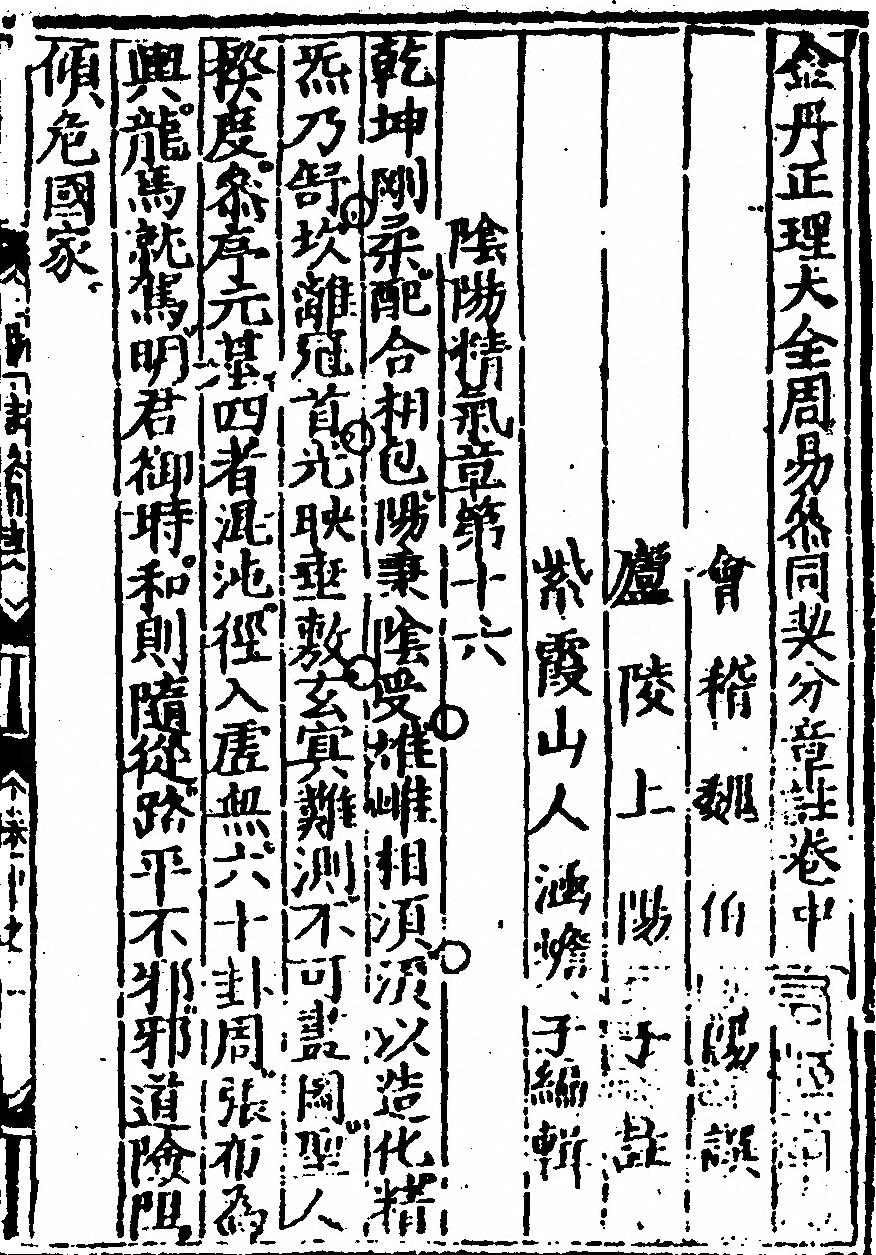 金丹正理大全周易參同契分章註卷中
會稽魏伯陽譔
廬陵上陽子註
紫霞山人涵蟾子編輯
陰陽精氣章第十六
乾坤剛柔配合相包陽秉陰受雄雌相須湏以造化精
炁乃舒坎離冠首光映垂敷玄冥難測不可畫圖聖人
揆度參序元基四者混沌徑入虛無六十卦周張布為
輿龍馬就駕明君御時和則隨從路平不邪邪道險阻
傾危國家